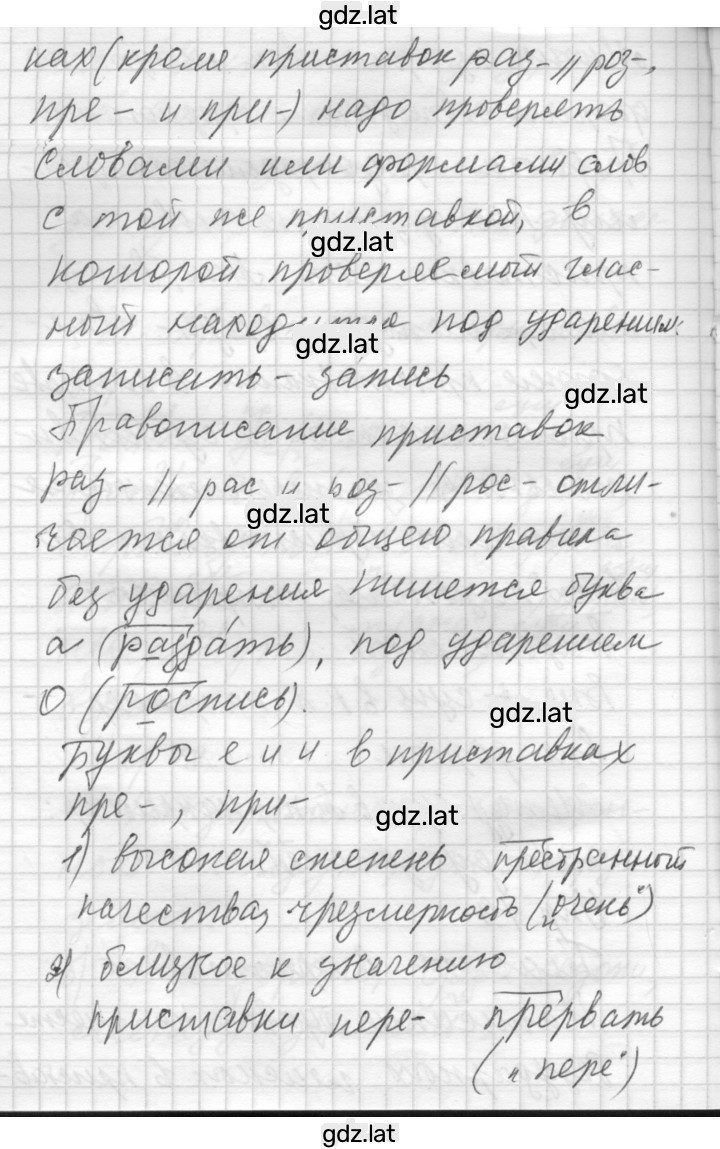 gdz.lat
ках (кроме приставок раз- // роз-,
пре- и при-) надо проверять
словами или формами слов
с той же приставкой, в
gdz.lat
которой проверяемый глас-
ный находится под ударением:
gdz.lat
записать - запись
gdz.lat
Правописание приставок
раз- // рас и роз- // рос- отли-
gdz.lat
чается от общего правила
без ударения пишется буква
а (разда́ть), под ударением
о (роспись).
gdz.lat
Буквы е и и в приставках
пре-, при-
gdz.lat
1) высокая степень престранный
качества, чрезмерность („очень")
2) близкое к значению
приставки пере- прервать
(„пере")
gdz.lat